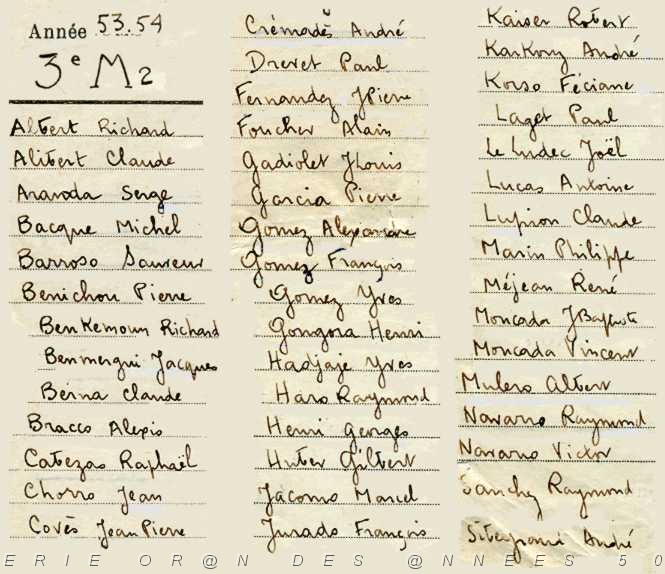 Année 53.54
3e M2
Albert Richard
Alibert Claude
Aravoda Serge
Bacque Michel
Barroso Sauveur
Benichou Pierre
Benkemoun Richard
Benmergui Jacques
Berna Claude
Bracco Alexis
Cabezas Raphaël
Chorro Jean
Covès Jean Pierre
Crémadès André
Drevet Paul
Fernandez JPierre
Foucher Alain
Gadiolet JLouis
Garcia Pierre
Gomez Alexandre
Gomez François
Gomez Yves
Gongora Henri
Hadjaje Yves
Haro Raymond
Henri Georges
Huber Gilbert
Jacomo Marcel
Jurado François
Kaiser Robert
Karkowy André
Korso Féciane
Laget Paul
Le Ludec Joël
Lucas Antoine
Lupion Claude
Marin Philippe
Méjean René
Moncada JBaptiste
Moncada Vincent
Mulero Albert
Navarro Raymond
Navarro Victor
Sanchez Raymond
André
ERIE OR@N DES @NNEES 50